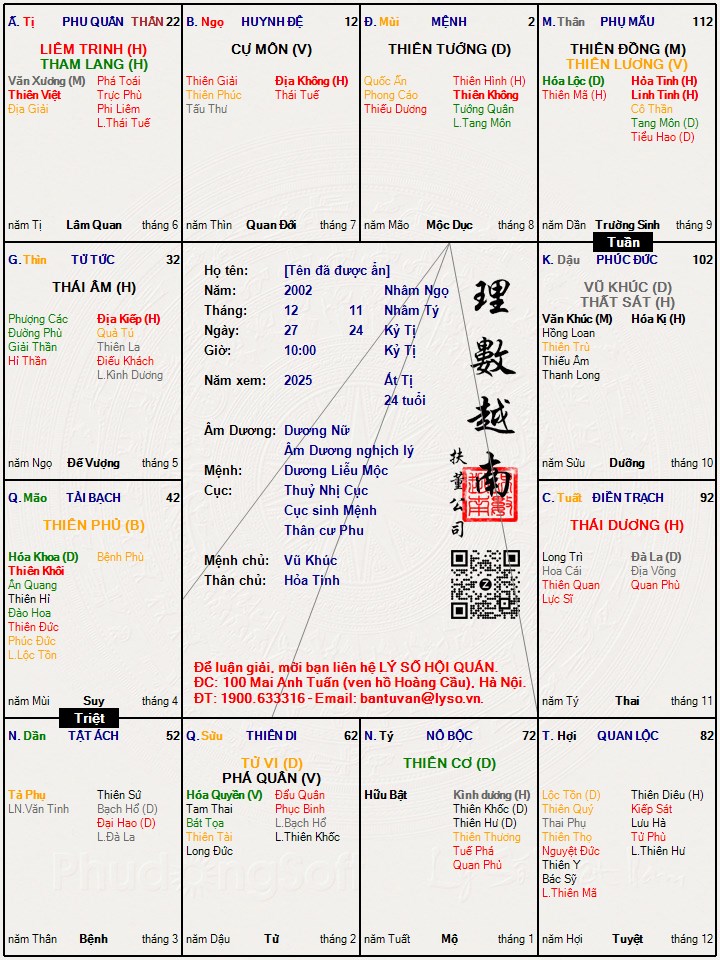 Ấ. Tị PHU QUÂN THÂN 22
LIÊM TRINH (H)
THAM LANG (H)
Văn Xương (M) Phá Toái
Thiên Việt Trực Phù
Địa Giải Phi Liêm
L.Thái Tuế
năm Tị Lâm Quan tháng 6
B. Ngọ HUYNH ĐỆ 12
CỰ MÔN (V)
Thiên Giải Địa Không (H)
Thiên Phúc Thái Tuế
Tấu Thư
năm Thìn Quan Đới tháng 7
Đ. Mùi MỆNH 2
THIÊN TƯỚNG (D)
Quốc Ấn Thiên Hình (H)
Phong Cáo Thiên Không
Thiếu Dương Tướng Quân
L.Tang Môn
năm Mão Mộc Dục tháng 8
M. Thân PHỤ MẪU 112
THIÊN ĐỒNG (M)
THIÊN LƯƠNG (V)
Hóa Lộc (D) Hỏa Tinh (H)
Thiên Mã (H) Linh Tinh (H)
Cô Thần
Tang Môn (D)
Tiểu Hao (D)
năm Dần Trường Sinh tháng 9
Tuần
G. Thìn TỬ TỨC 32
THÁI ÂM (H)
Phượng Các Địa Kiếp (H)
Đường Phù Quả Tú
Giải Thần Thiên La
Hỉ Thần Điếu Khách
L.Kình Dương
năm Ngọ Đế Vượng tháng 5
Họ tên: [Tên đã được ẩn]
Năm: 2002 Nhâm Ngọ
Tháng: 12 11 Nhâm Tý
Ngày: 27 24 Kỷ Tị
Giờ: 10:00 Kỷ Tị
Năm xem: 2025 Ất Tị
24 tuổi
Âm Dương: Dương Nữ
Âm Dương nghịch lý
Mệnh: Dương Liễu Mộc
Cục: Thuỷ Nhị Cục
Cục sinh Mệnh
Thân cư Phu
Mệnh chủ: Vũ Khúc
Thân chủ: Hỏa Tinh
理數越南
扶董公司
Z
Để luận giải, mời bạn liên hệ LÝ SỐ HỘI QUÁN.
ĐC: 100 Mai Anh Tuấn (ven hồ Hoàng Cầu), Hà Nội.
ĐT: 1900.633316 - Email: bantuvan@lyso.vn.
K. Dậu PHÚC ĐỨC 102
VŨ KHÚC (D)
THẤT SÁT (H)
Văn Khúc (M) Hóa Kị (H)
Hồng Loan
Thiên Trù
Thiếu Âm
Thanh Long
năm Sửu Dưỡng tháng 10
Q. Mão TÀI BẠCH 42
THIÊN PHỦ (B)
Hóa Khoa (D) Bệnh Phù
Thiên Khôi
Ân Quang
Thiên Hỉ
Đào Hoa
Thiên Đức
Phúc Đức
L.Lộc Tồn
năm Mùi Suy tháng 4
Triệt
C. Tuất ĐIỀN TRẠCH 92
THÁI DƯƠNG (H)
Long Trì Đà La (D)
Hoa Cái Địa Võng
Thiên Quan Quan Phù
Lực Sĩ
năm Tý Thai tháng 11
N. Dần TẬT ÁCH 52
Tả Phụ Thiên Sứ
LN.Văn Tinh Bạch Hổ (D)
Đại Hao (D)
L.Đà La
năm Thân Bệnh tháng 3
Q. Sửu THIÊN DI 62
TỬ VI (D)
PHÁ QUÂN (V)
Hóa Quyền (V) Đẩu Quân
Tam Thai Phục Binh
Bát Tọa L.Bạch Hổ
Thiên Tài L.Thiên Khốc
Long Đức
năm Dậu Tử tháng 2
N. Tý NÔ BỘC 72
THIÊN CƠ (D)
Hữu Bật Kình dương (H)
Thiên Khốc (D)
Thiên Hư (D)
Thiên Thương
Tuế Phá
Quan Phủ
năm Tuất Mộ tháng 1
T. Hợi QUAN LỘC 82
Lộc Tồn (D) Thiên Diêu (H)
Thiên Quý Kiếp Sát
Thai Phụ Lưu Hà
Thiên Thọ Tử Phù
Nguyệt Đức L.Thiên Hư
Thiên Y
Bác Sỹ
L.Thiên Mã
năm Hợi Tuyệt tháng 12